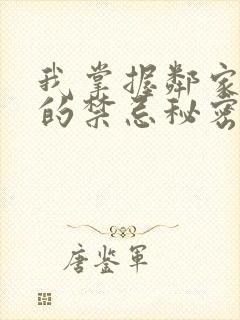 我掌握邻家
的禁忌秘密
唐鉴军